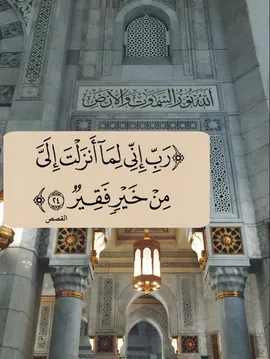 الله نور السموت والأرض
﴿رَبِّ إِنِّي لِمَآ أَنزَلْتَ إِلَىَّ
مِنْ خَيْرٍ فَقِيرٌ ٢٤﴾
القصص